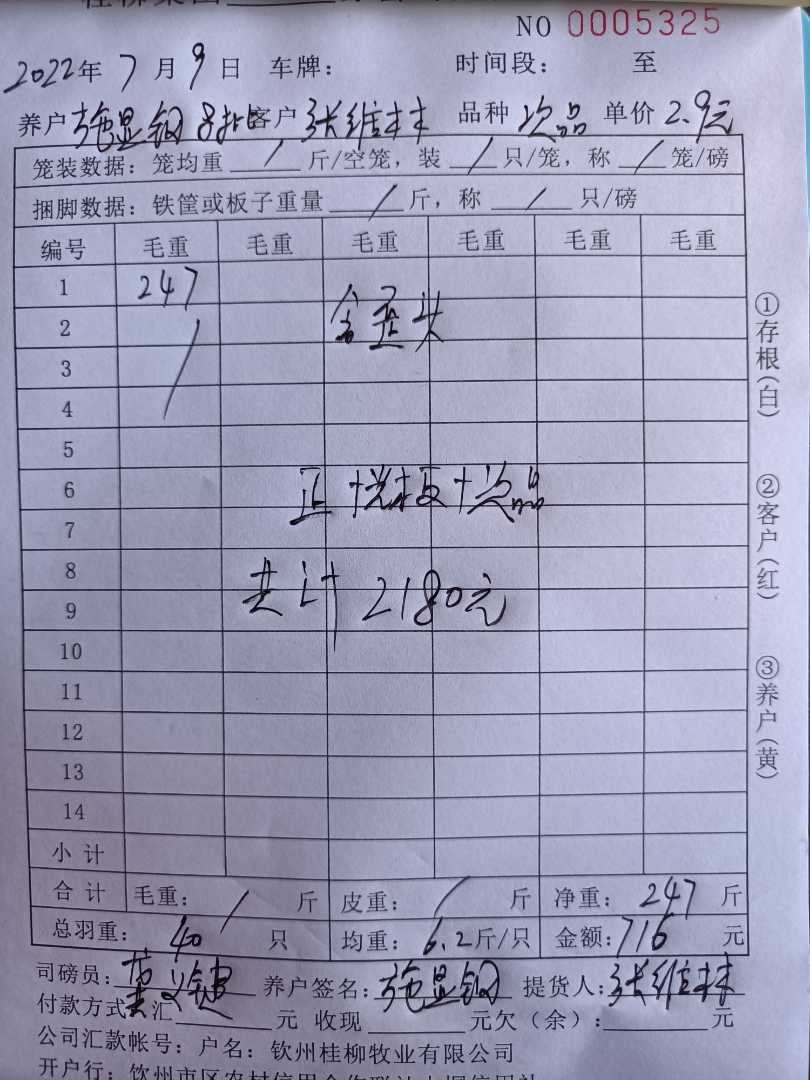 NO 0005325
2022年 7 月 9 日 车牌： 时间段： 至
养户 施显钢 8排 客户 张维林 品种 次品 单价 2.9元
笼装数据：笼均重 / 斤/空笼，装 / 只/笼，称 / 笼/磅
捆脚数据：铁筐或板子重量 / 斤，称 / 只/磅
编号 毛重 毛重 毛重 毛重 毛重 毛重
1 247
2 / 含歪头
3
4
5
6 正+光板+次品
7
8 共计 2180元
9
10
11
12
13
14
小计
合计 毛重： / 斤 皮重： / 斤 净重： 247 斤
总羽重： 40 只 均重： 6.2 斤/只 金额： 716 元
司磅员： 养户签名：施显钢 提货人：张维林
付款方式 汇 元 收现 元欠（余）： 元
公司汇款帐号：户名：钦州桂柳牧业有限公司
开户行：钦州市区农村信用合作联社
①存根（白）
②客户（红）
③养户（黄）